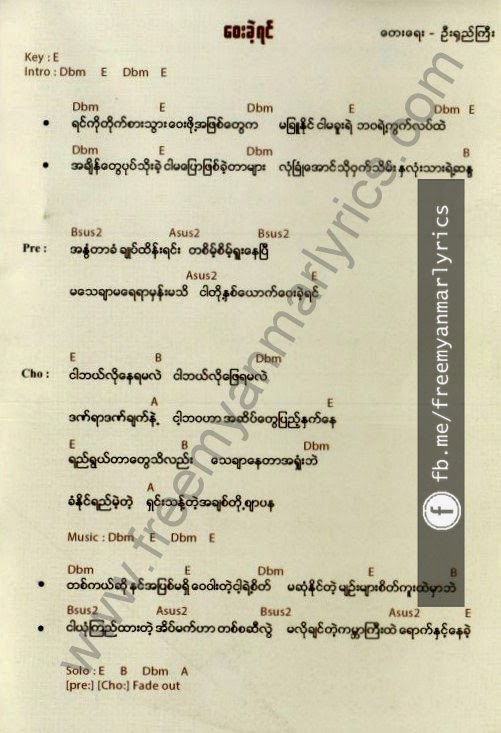 ဝေးခဲ့ရင်
တေးရေး - ဦးရှည်ကြီး
Key : E
Intro : Dbm E Dbm E
Dbm E Dbm E Dbm E
• ရင်ကိုတိုက်စားသွားဝေးဖို့အဖြစ်တွေက မဖြူနိုင် ငါမခူးရဲ ဘဝရဲ့ကွက်လပ်ထဲ
Dbm E Dbm B
• အချိန်တွေပုပ်သိုးခဲ့ ငါမပြောဖြစ်ခဲ့တာများ လုံခြုံအောင်သိုဝှက်သိမ်း နှလုံးသားရဲ့ဆန္ဒ
Bsus2 Asus2 Bsus2
Pre : အနွံတာခံ ချုပ်ထိန်းရင်း တစိမ့်စိမ့်ရူးနေပြီ
Asus2 E
မသေချာမရေရာမှန်းမသိ ငါတို့နှစ်ယောက်ဝေးခဲ့ရင်
E B Dbm
Cho : ငါဘယ်လိုနေရမလဲ ငါဘယ်လိုဖြေရမလဲ
A E
ဒဏ်ရာဒဏ်ချက်နဲ့ ငါ့ဘဝဟာ အဆိပ်တွေပြည့်နှက်နေ
E B Dbm
ရည်ရွယ်တာတွေသိလည်း သေချာနေတာအရှုံးဘဲ
A
ခံနိုင်ရည်မဲ့တဲ့ ရှင်းသန့်တဲ့အချစ်တို့ဈာပန
Music : Dbm E Dbm E
Dbm E Dbm E B
• တစ်ကယ်ဆို နင်အပြစ်မရှိ ဝေဝါးတဲ့ငါ့ရဲ့စိတ် မဆုံနိုင်တဲ့ မျဉ်းများစိတ်ကူးထဲမှာဘဲ
Bsus2 Asus2 Bsus2 Asus2 E
• ငါယုံကြည်ထားတဲ့ အိပ်မက်ဟာ တစ်စဆီလွဲ မလိုချင်တဲ့ကမ္ဘာကြီးထဲ ရောက်နှင့်နေခဲ့
Solo : E B Dbm A
[pre:] [Cho:] Fade out
www.freemyanmarlyrics.com
fb.me/freemyanmarlyrics